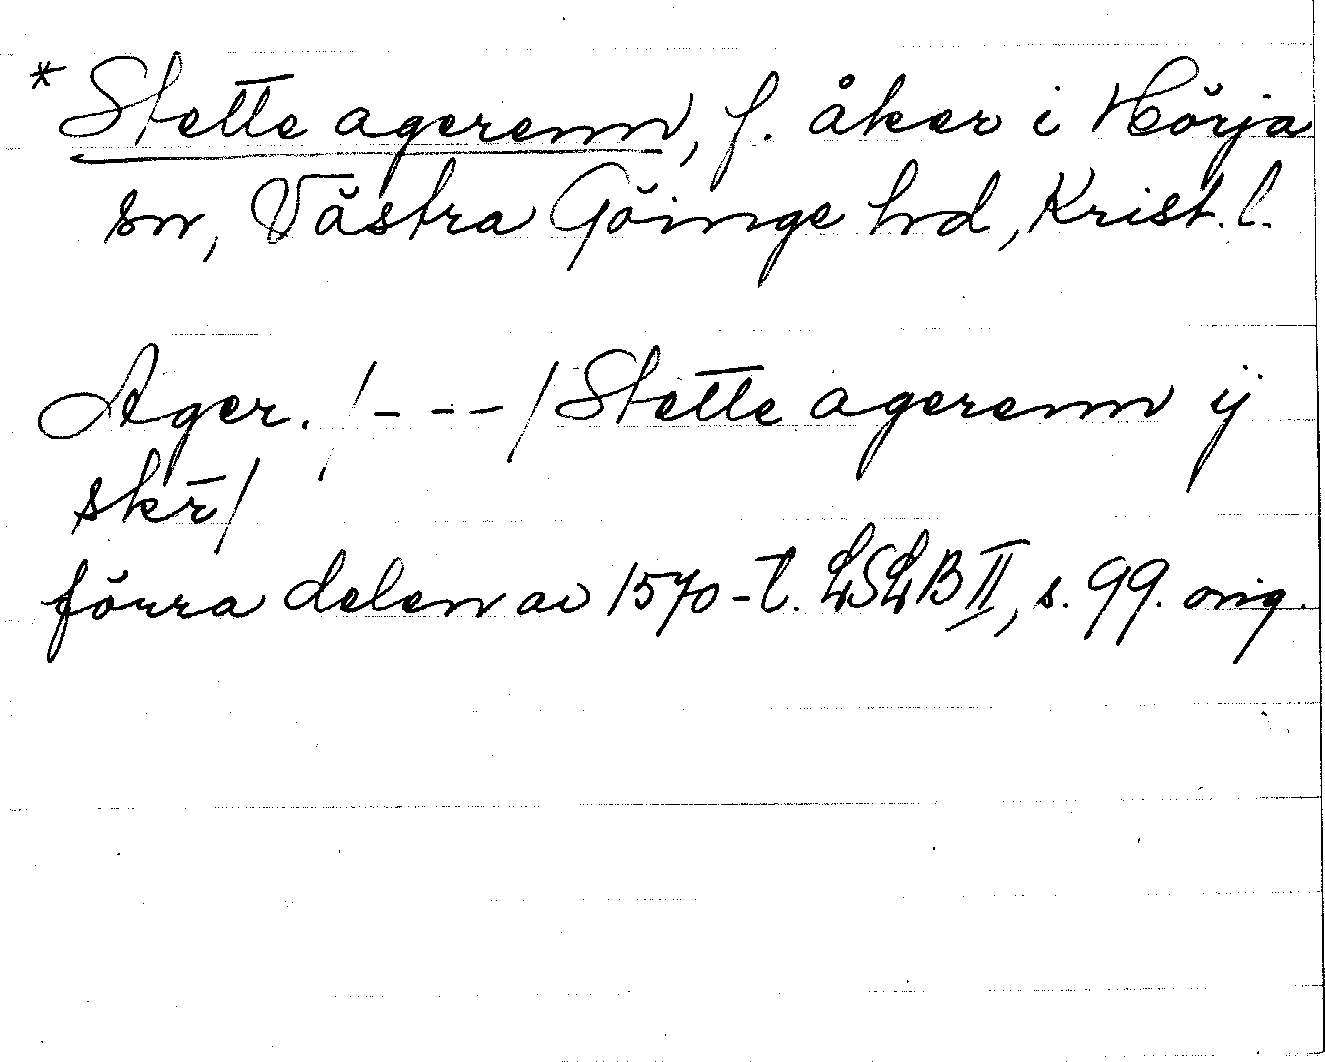 * Stette agerenn, f. åker i Hörja
sn, Västra Göinge hd, Krist. l.
Ager. /---/ Stette agerenn ij
skr̄/
förra delen av 1570-t. LSLB II, s. 99. orig.